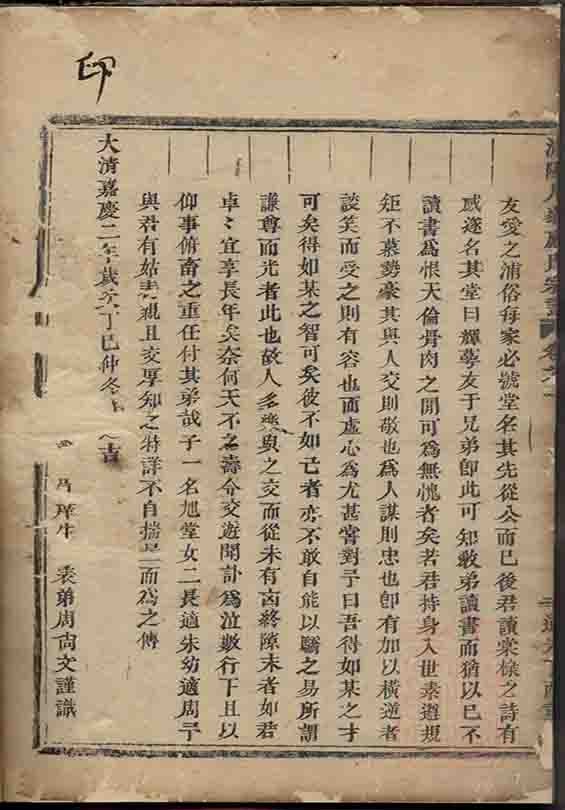 友愛之浦俗每家必號堂名其先從公而已後君讀棠棣之詩有
感遂名其堂曰輝萼友于兄弟卽此可知敎弟讀書而猶以已不
讀書爲恨天倫骨肉之閒可爲無愧者矣若君持身入世素遵規
矩不慕勢豪其與人交則敬也爲人謀則忠也卽有加以橫逆者
談笑而受之則有容也而虛心爲尤甚嘗對予曰吾得如某之才
可矣得如某之智可矣彼不如己者亦不敢自能以驕之易所謂
謙尊而光者此也故人多樂與之交而從未有凶終隙末者如君
卓卓宜享長年矣奈何天不之壽令交遊聞訃爲泣數行下且以
仰事俯畜之重任付其弟哉子一名旭堂女二長適朱幼適周予
與君有姑表親且交厚知之特詳不自揣而爲之傳
大清嘉慶二年歲次丁巳仲冬 吉
表弟周尚文謹識
印
氏宗譜